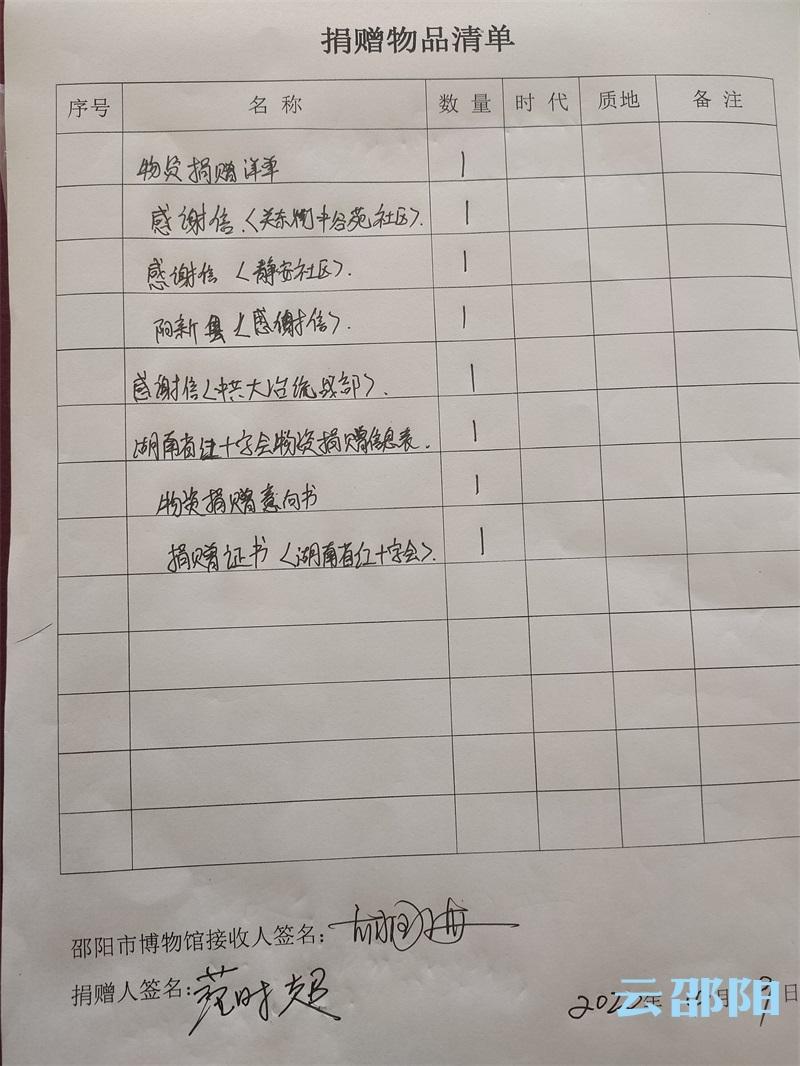 捐赠物品清单
序号 名称 数量 时代 质地 备注
物资捐赠详单 1
感谢信.《关东街中谷苑社区》. 1
感谢信《静安社区》. 1
阳新县《感谢信》. 1
感谢信《中共大冶统战部》. 1
湖南省红十字会物资捐赠信息表. 1
物资捐赠意向书 1
捐赠证书《湖南省红十字会》. 1
邵阳市博物馆接收人签名:
捐赠人签名:范时超
年 月 日
云邵阳